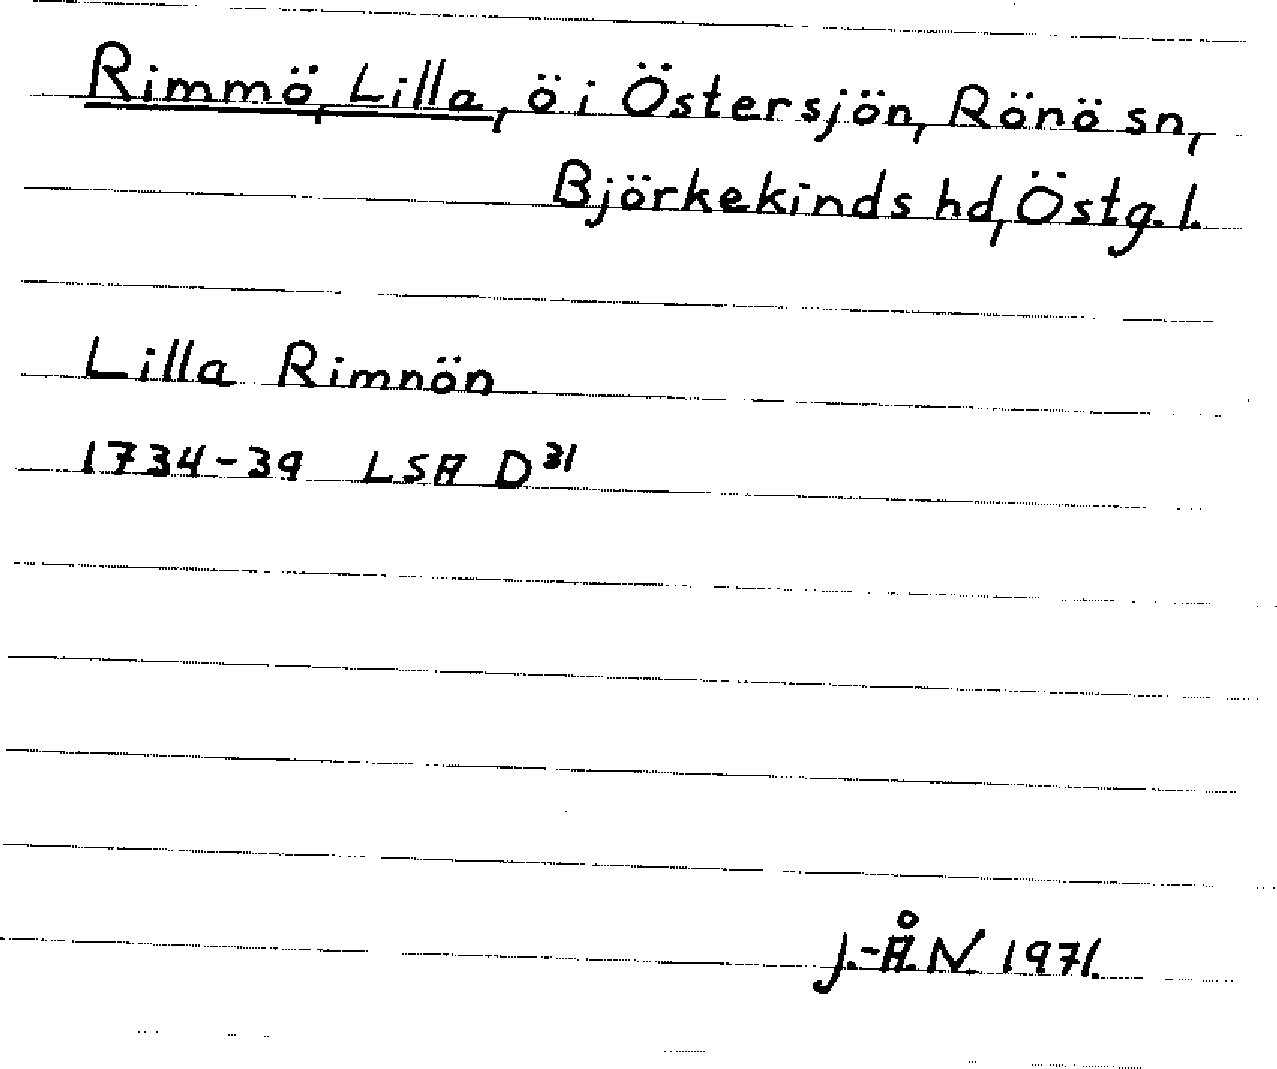 Rimmö, Lilla, ö i Östersjön, Rönö sn,
Björkekinds hd, Östg. l.
Lilla Rimnön
1734-39 LSA D 31
J.-Å. N. 1971.